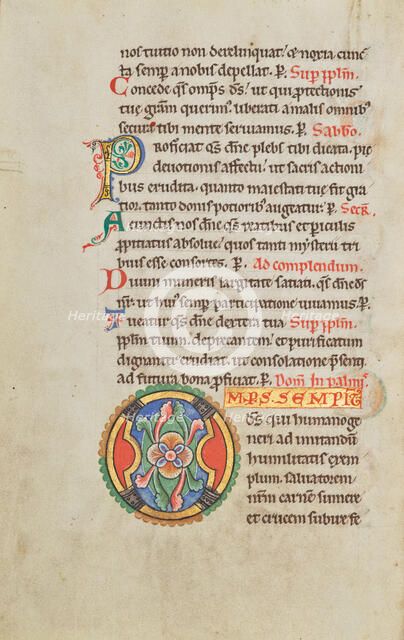 nos tuitio non derelinquat. & noxia cunc
ta semp a nobis depellat. P. Sup pplm.
Concede qs omps ds. ut qui protectionis
tuę gram querimus. liberati a malis omnibus
secura tibi mente seruiamus. P. Sabbo.
Proficiat qs dne plebs tibi dicata. pie
deuotionis affectu. ut sacris actioni
bus erudita. quanto maiestati tuę fit gra
tior. tanto donis potioribus augeatur. P. Secr.
A cunctis nos dne qs reatibus & periculis
ppitiatus absolue. quos tanti mysterii tri
buis esse consortes. P. Ad complendum.
Diuini muneris largitate satiati. qs dne ds
nr. ut huius semp participatione uiuamus. P.
Tueatur qs dne dextera tua Sup pplm.
pplm tuum deprecantem. & purificatum
dignanter erudiat. ut consolatione psenti
ad futura bona pficiat. P. Dom. In palmis.
OMPS SEMPIT
ds. qui humano ge
neri ad imitandum
humilitatis exem
plum. saluatorem
nrm carnem sumere
et crucem subire fe
Heritage Heritage